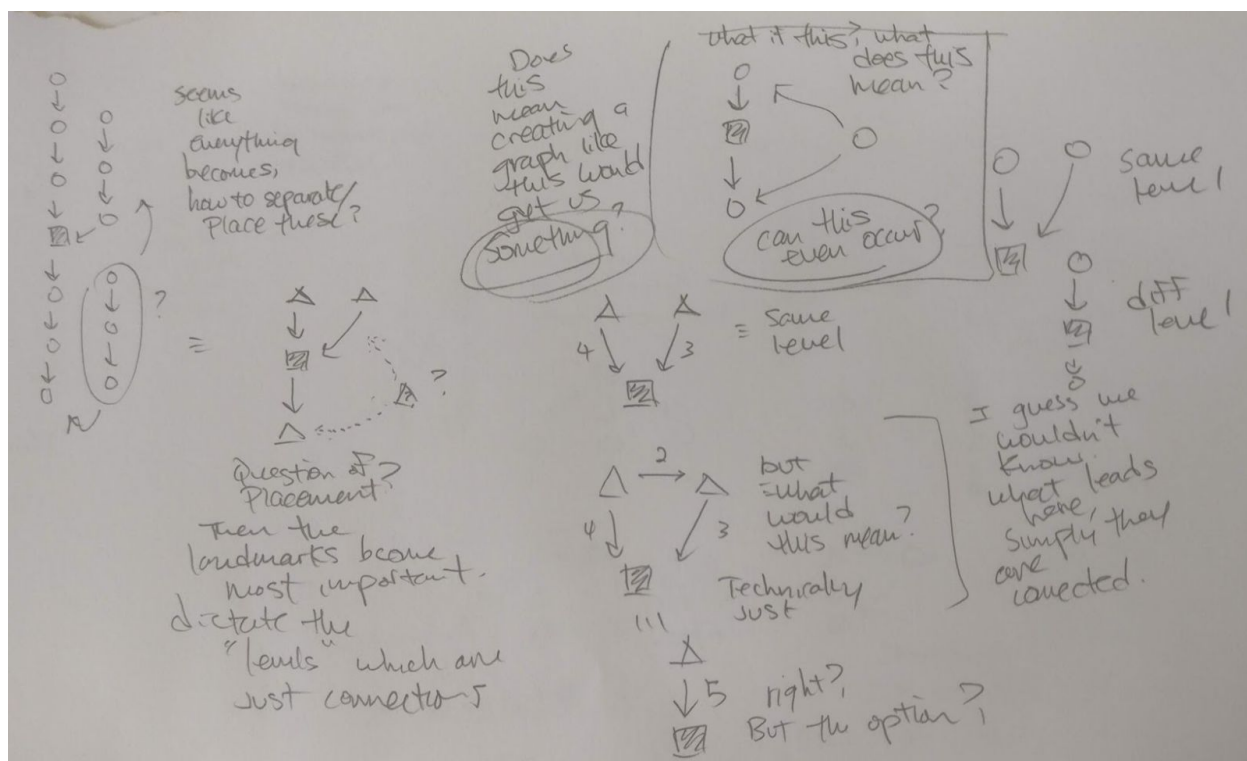 seems
like
everything
becomes,
how to separate/
Place these?
?
≡
?
Question of?
Placement?
Then the
landmarks become
most important.
dictate the
"levels" which are
just connectors
Does
this
mean
creating a
graph like
this would
get us
something?
what if this, what
does this
mean?
can this
even occur?
same
level
diff
level
4
3
≡ same
level
2
4
3
but
what
would
this mean?
Technically
just
5
right?
But the option?
I guess we
wouldn't
know.
what leads
here,
simply they
are
conected.